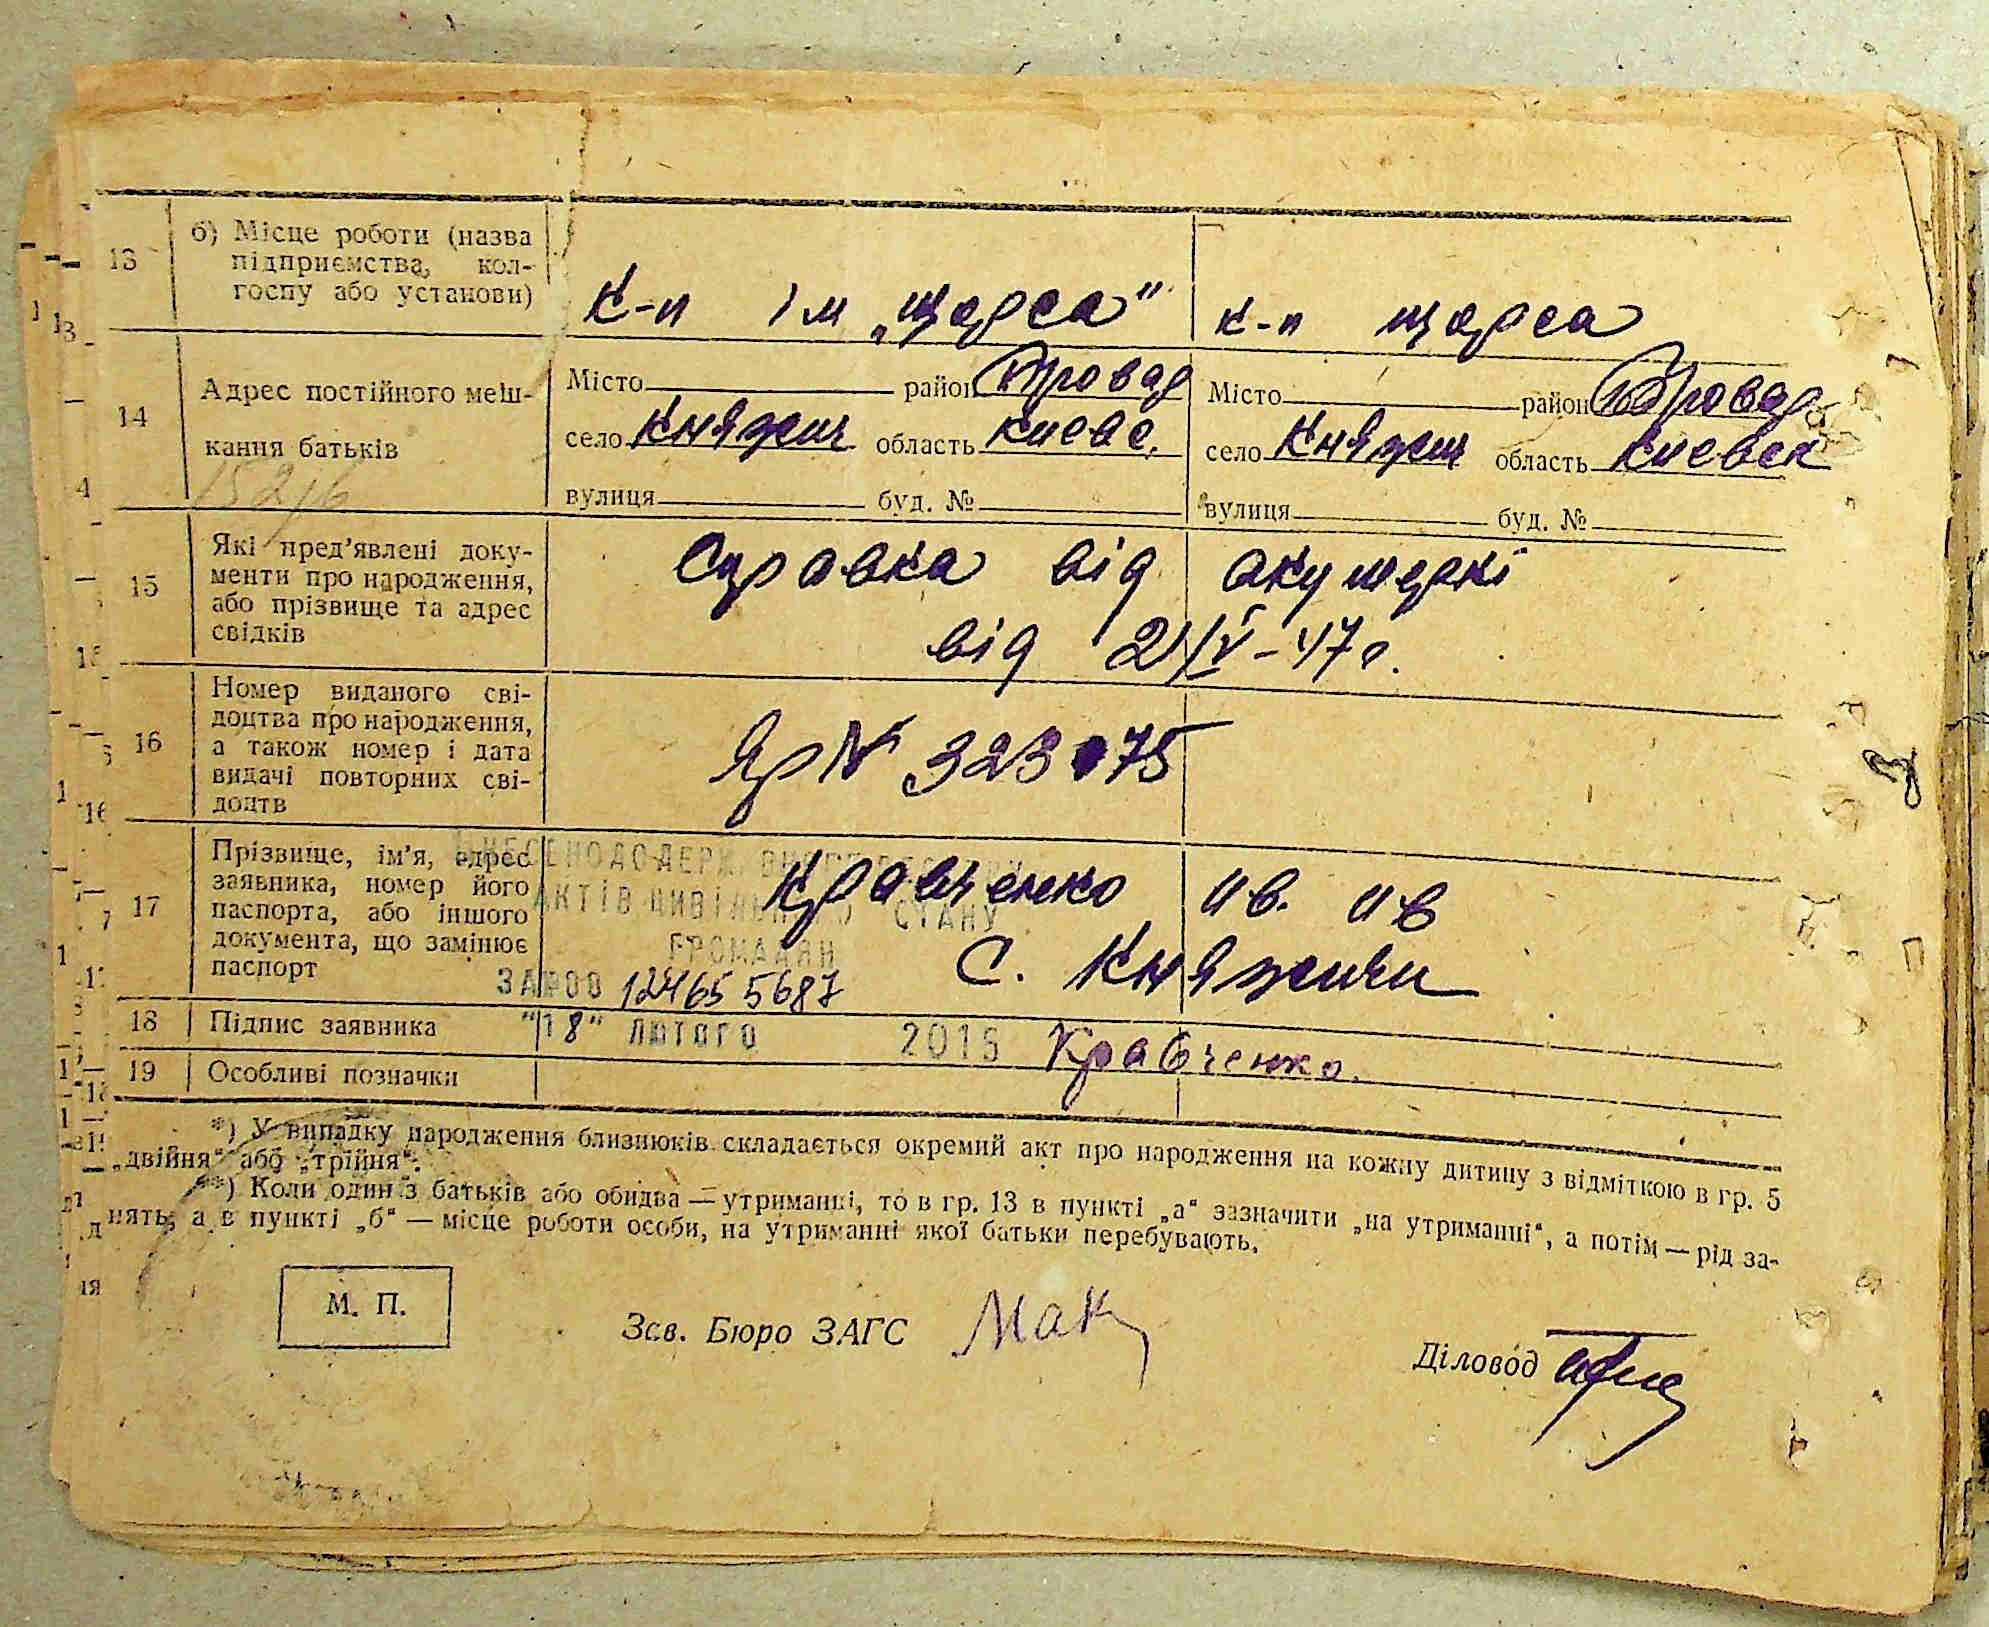 13
б) Місце роботи (назва
підприємства, кол-
госпу або установи)
к-п ім „Щорса"
к-п Щорса
14
Адрес постійного меш-
кання батьків
Місто район Бровар
село Княжич область Киевс.
вулиця буд. №
Місто район Бровар
село Княжич область Киевск
вулиця буд. №
15
Які пред'явлені доку-
менти про народження,
або прізвище та адрес
свідків
Справка від акушеркі
від 2/IV-47 г.
16
Номер виданого сві-
доцтва про народження,
а також номер і дата
видачі повторних сві-
доцтв
Яр № 323075
17
Прізвище, ім'я, адрес
заявника, номер його
паспорта, або іншого
документа, що замінює
паспорт
Кравченко Ив. Ив
с. Княжичи
ВНЕСЕНО ДО ДЕРЖАВНОГО РЕЄСТРУ
АКТІВ ЦИВІЛЬНОГО СТАНУ
ГРОМАДЯН
ЗА №00 124655687
"18" ЛЮТОГО 2015
18
Підпис заявника
Кравченко.
19
Особливі позначки
*) У випадку народження близнюків складається окремий акт про народження на кожну дитину з відміткою в гр. 5
„двійня" або „трійня".
**) Коли один з батьків або обидва — утриманці, то в гр. 13 в пункті „а" зазначити „на утриманні", а потім — рід за-
нять, а в пункті „б" — місце роботи особи, на утриманні якої батьки перебувають.
М. П.
Зав. Бюро ЗАГС Мак
Діловод